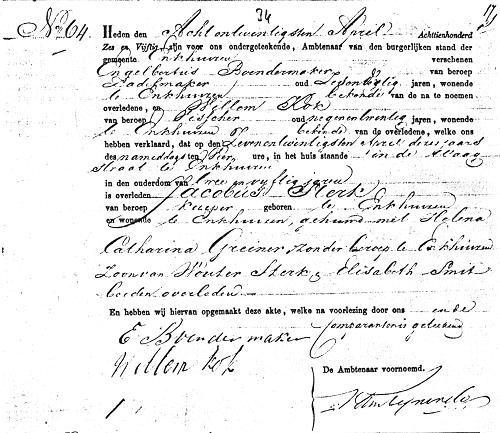 34 17
No. 64. Heden den Acht en twintigsten April Achttienhonderd
Zes en Vijftig zijn voor ons ondergeteekende, Ambtenaar van den burgerlijken stand der
gemeente Enkhuizen verschenen
Engelbertus Boendermaker van beroep
oud jaren, wonende
te Enkhuizen bekende van de na te noemen
overledene, en Willem Kok
van beroep Visscher oud negenentwintig jaren, wonende
te Enkhuizen bekende van de overledene, welke ons
hebben verklaard, dat op den Zevenentwintigsten April dezes jaars
des namiddags ten vier ure, in het huis staande in de
straat te Enkhuizen
in den ouderdom van twee en vijftig jaren
is overleden Jacobus Sterk
van beroep Kuiper geboren te Enkhuizen
en wonende te Enkhuizen, gehuwd met Helena
Catharina Greiner zonder beroep te Enkhuizen
Zoon van Wouter Sterk & Elisabeth Smit
beiden overleden
En hebben wij hiervan opgemaakt deze akte, welke na voorlezing door ons en de
comparanten is geteekend
E Boendermaker
Willem Kok
De Ambtenaar voornoemd.